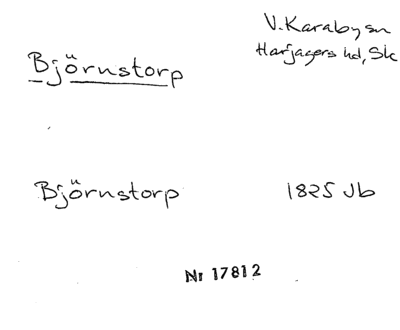 V. Karaby sn
Harjagers hd, Sk
Björnstorp
Björnstorp 1825 Jb
Nr 17812